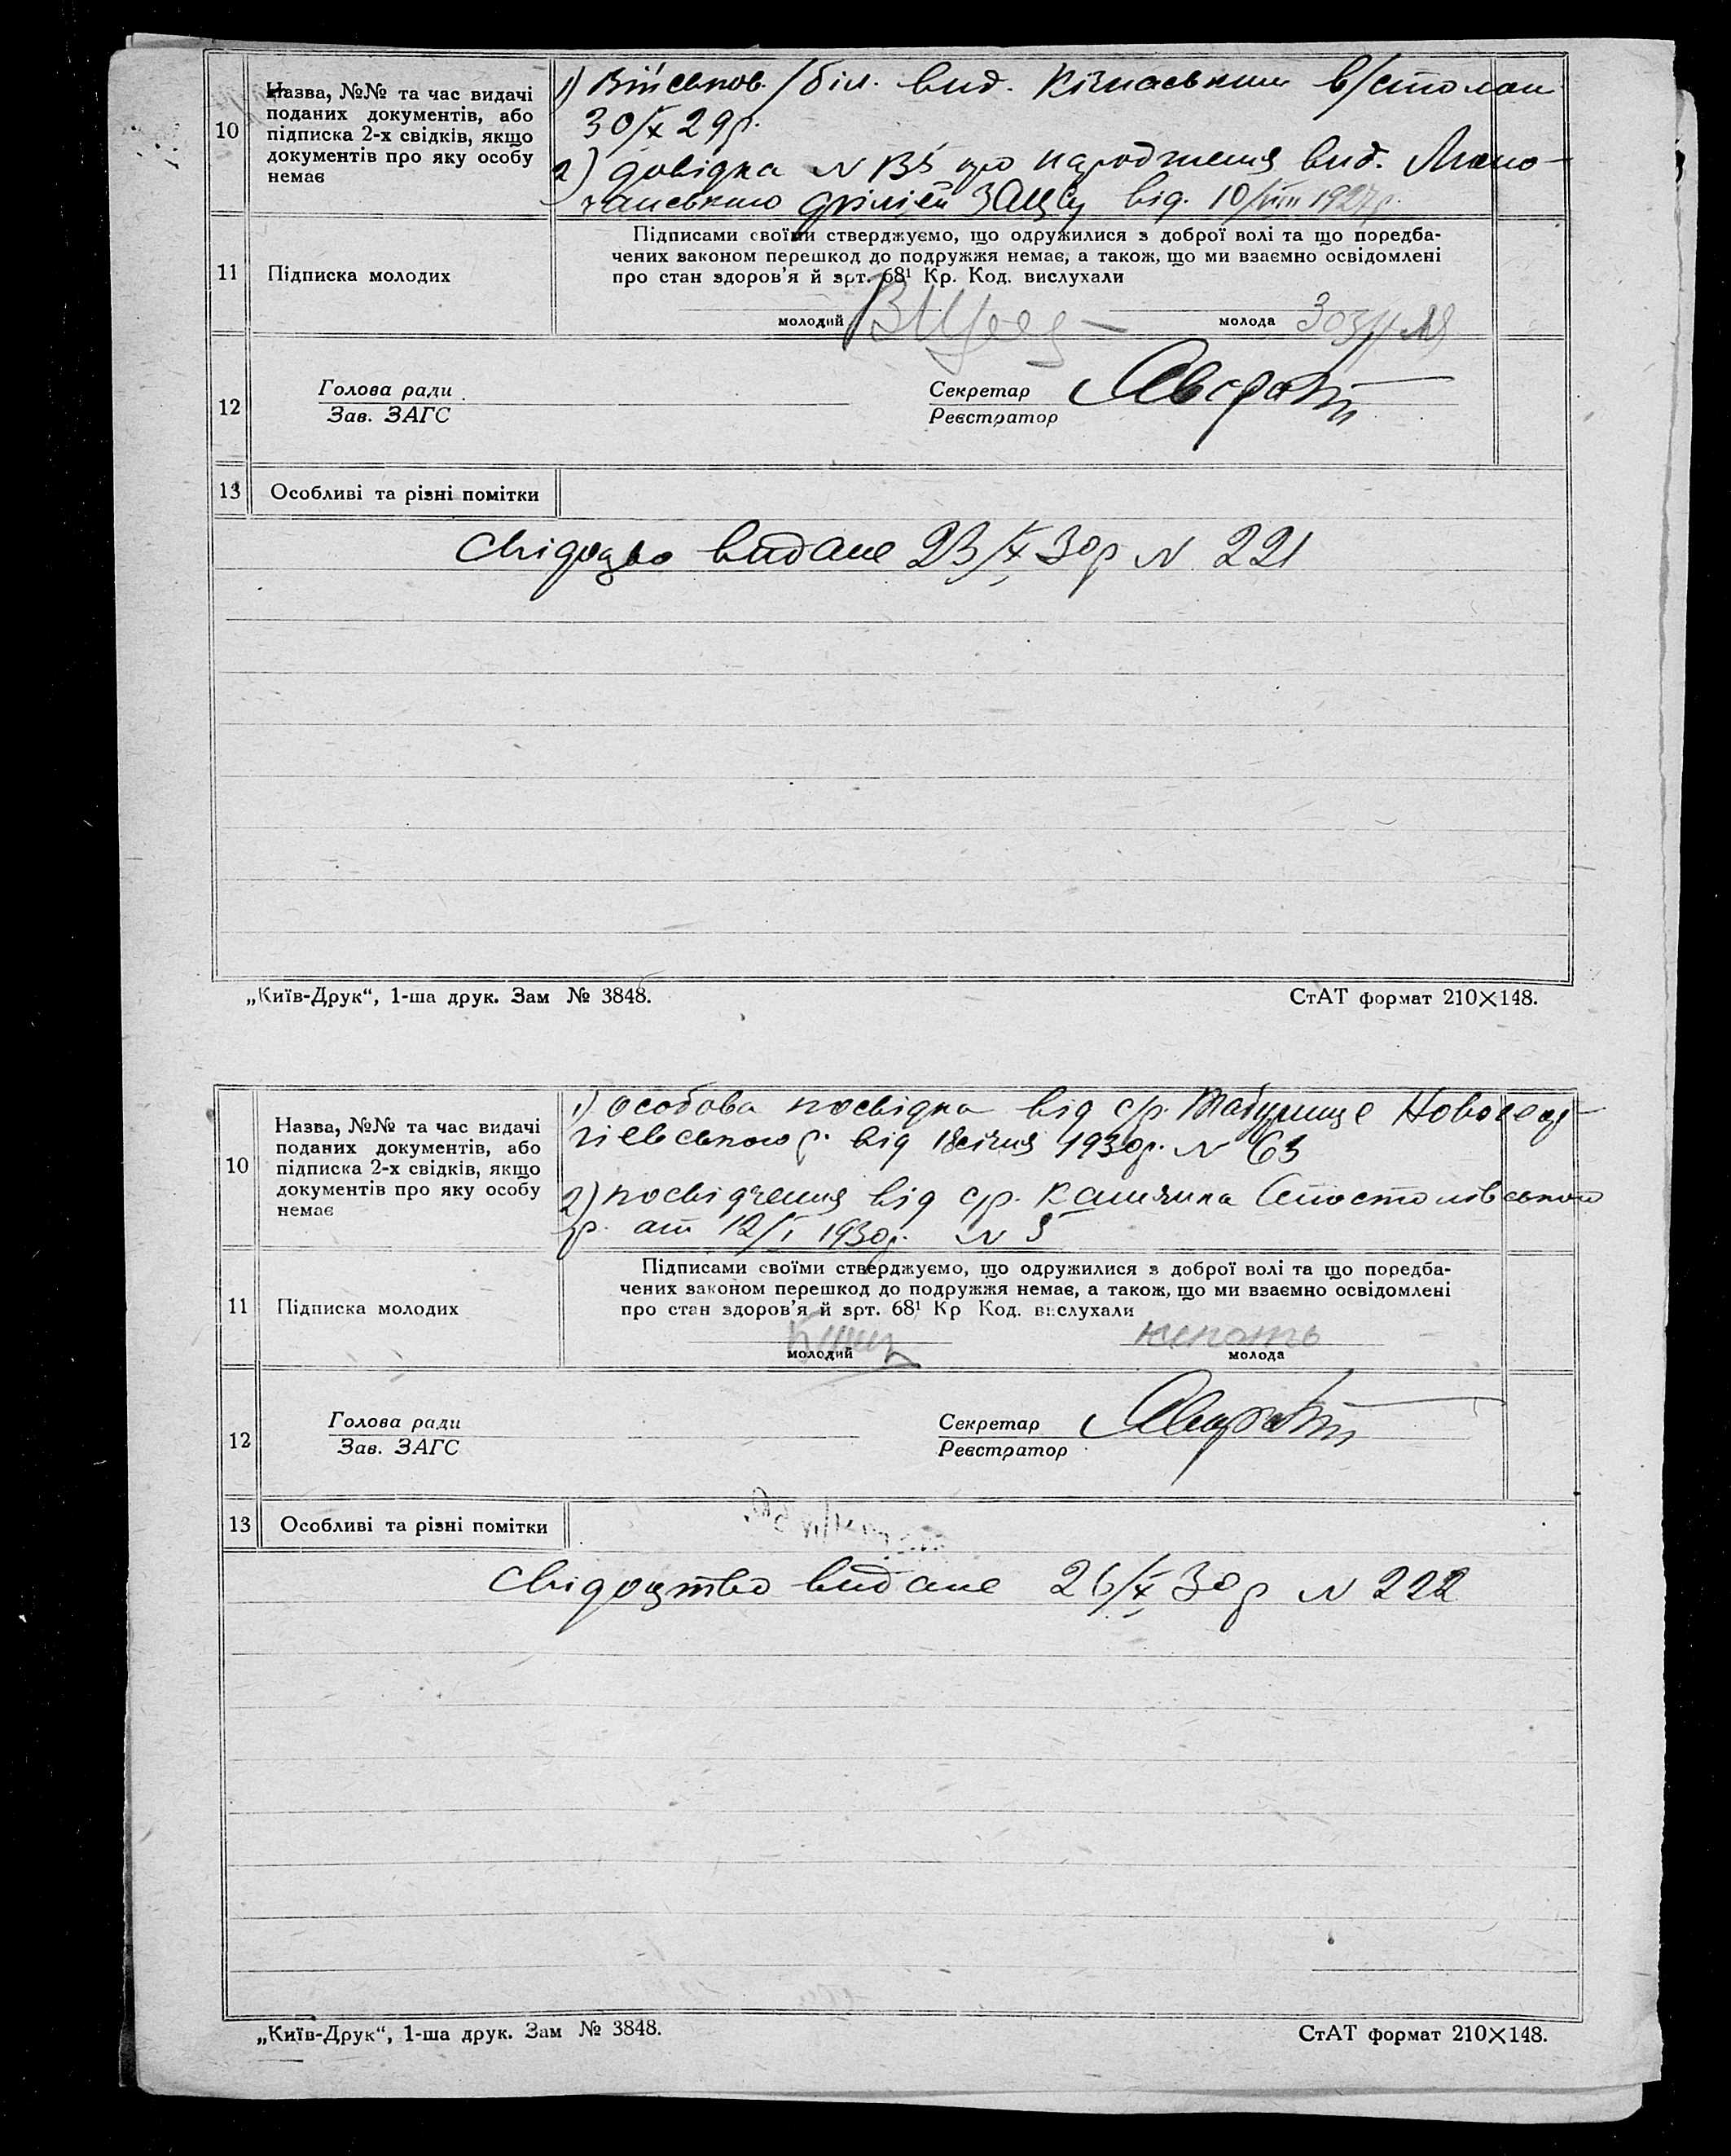 10
Назва, №№ та час видачі
поданих документів, або
підписка 2-х свідків, якщо
документів про яку особу
немає
1) Військов./біл. вид. в/столом
30/X 29р.
2) довідка N про народження вид.
філією ЗАЦСу від. 10/VIII 1927р.
11
Підписка молодих
Підписами своїми стверджуємо, що одружилися з доброї волі та що поредба-
чених законом перешкод до подружжя немає, а також, що ми взаємно освідомлені
про стан здоров'я й зрт. 68¹ Кр. Код. вислухали
молодий
молода
12
Голова ради
Зав. ЗАГС
Секретар
Реєстратор
13
Особливі та різні помітки
Свідоцтво видане 23/X 30р N 221
„Київ-Друк“, 1-ша друк. Зам № 3848.
СтАТ формат 210×148.
10
Назва, №№ та час видачі
поданих документів, або
підписка 2-х свідків, якщо
документів про яку особу
немає
1) особова посвідка від с/р. Табурище Новогеор-
гіевського р. від січня 1930р. N 63
2) посвідчення від с/р. Камянка Апостолівського
р. від 12/I 1930р. N 5
11
Підписка молодих
Підписами своїми стверджуємо, що одружилися з доброї волі та що поредба-
чених законом перешкод до подружжя немає, а також, що ми взаємно освідомлені
про стан здоров'я й зрт. 68¹ Кр Код. вислухали
молодий
молода
12
Голова ради
Зав. ЗАГС
Секретар
Реєстратор
13
Особливі та різні помітки
Свідоцтво видане 26/X 30р N 222
„Київ-Друк“, 1-ша друк. Зам № 3848.
СтАТ формат 210×148.